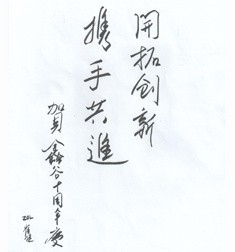 開拓创新
攜手共進
賀鑫谷十周年慶